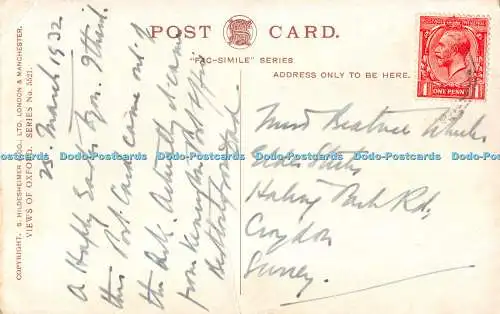 POST CARD.
"FAC-SIMILE" SERIES.
ADDRESS ONLY TO BE HERE.
POSTAGE REVENUE
ONE PENNY
COPYRIGHT. S. HILDESHEIMER & CO., LTD. LONDON & MANCHESTER.
VIEWS OF OXFORD. SERIES No. 5521.
25 March 1932
A Happy Easter to you. I think
this Post Card came out of
the Ark. Actually it came
from Kennington Post Office
Miss Beatrice
Haling Park Rd,
Croydon
Surrey.
Dodo-Postcards Dodo-Postcards Dodo-Postcards Dodo-Postcards Dodo-Postcards